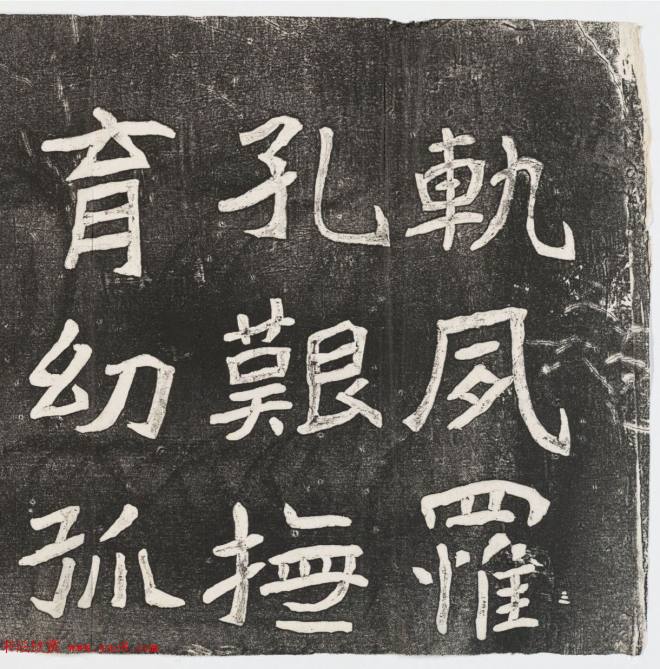 軌夙罹
孔艱撫
育幼孤